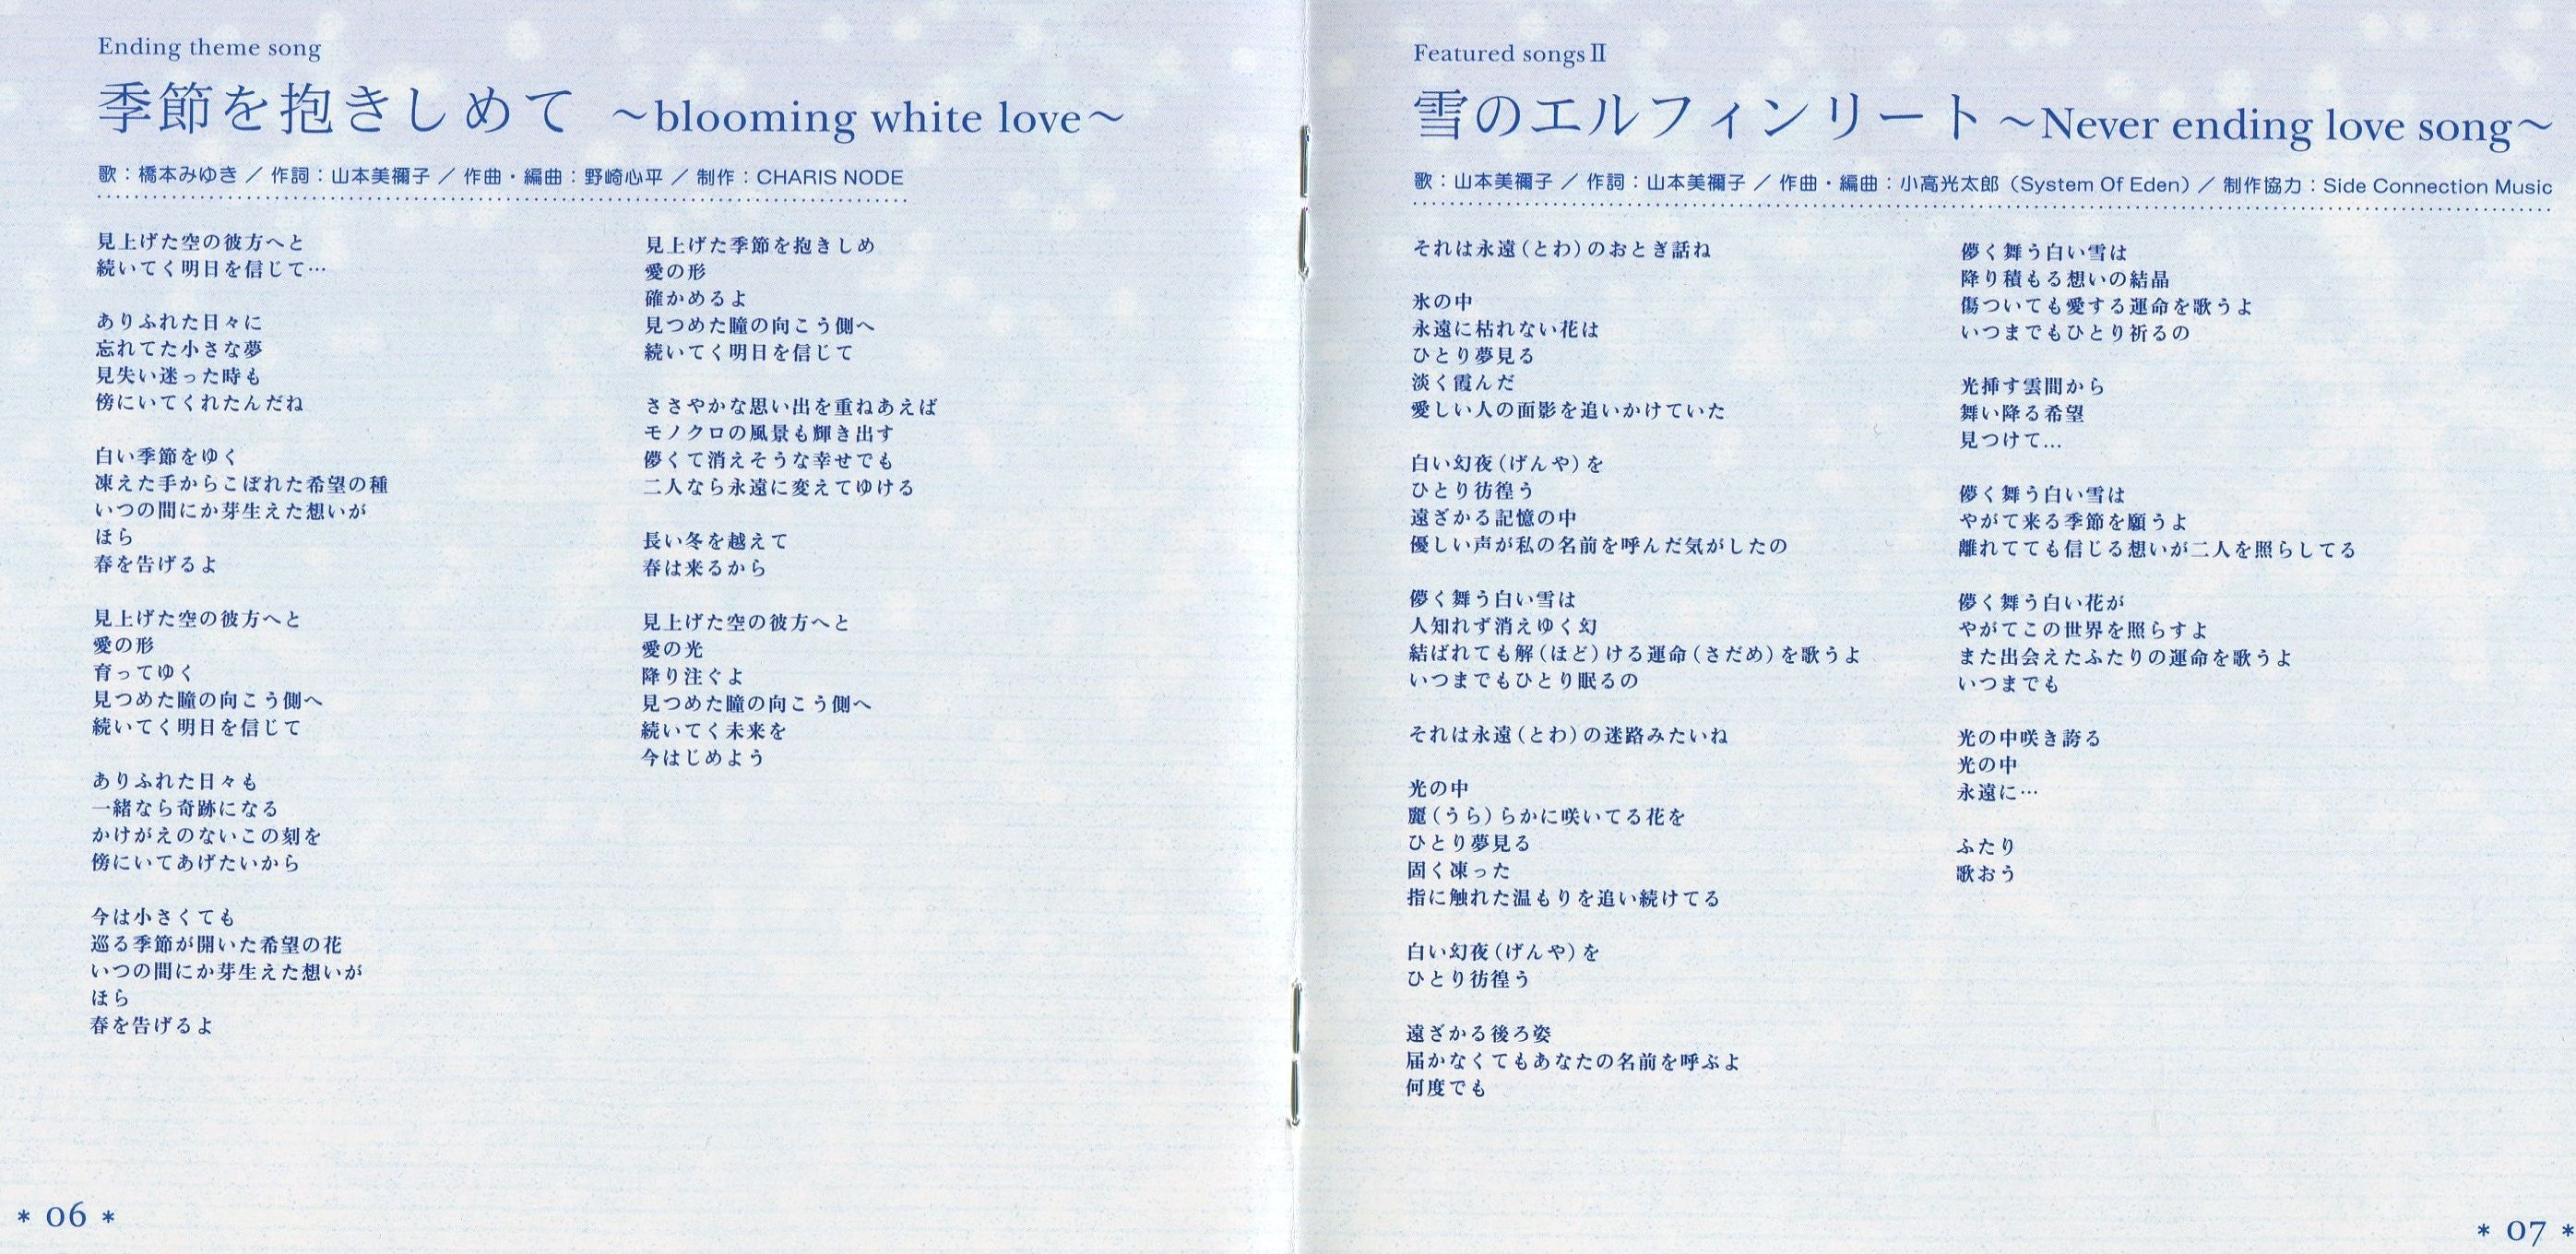 Ending theme song
季節を抱きしめて ～blooming white love～
歌：橋本みゆき ／ 作詞：山本美禰子 ／ 作曲・編曲：野崎心平 ／ 制作：CHARIS NODE
見上げた空の彼方へと
続いてく明日を信じて…
ありふれた日々に
忘れてた小さな夢
見失い迷った時も
傍にいてくれたんだね
白い季節をゆく
凍えた手からこぼれた希望の種
いつの間にか芽生えた想いが
ほら
春を告げるよ
見上げた空の彼方へと
愛の形
育ってゆく
見つめた瞳の向こう側へ
続いてく明日を信じて
ありふれた日々も
一緒なら奇跡になる
かけがえのないこの刻を
傍にいてあげたいから
今は小さくても
巡る季節が開いた希望の花
いつの間にか芽生えた想いが
ほら
春を告げるよ
見上げた季節を抱きしめ
愛の形
確かめるよ
見つめた瞳の向こう側へ
続いてく明日を信じて
ささやかな思い出を重ねあえば
モノクロの風景も輝き出す
儚くて消えそうな幸せでも
二人なら永遠に変えてゆける
長い冬を越えて
春は来るから
見上げた空の彼方へと
愛の光
降り注ぐよ
見つめた瞳の向こう側へ
続いてく未来を
今はじめよう
* 06 *
Featured songsⅡ
雪のエルフィンリート ～Never ending love song～
歌：山本美禰子 ／ 作詞：山本美禰子 ／ 作曲・編曲：小高光太郎（System Of Eden）／ 制作協力：Side Connection Music
それは永遠（とわ）のおとぎ話ね
氷の中
永遠に枯れない花は
ひとり夢見る
淡く霞んだ
愛しい人の面影を追いかけていた
白い幻夜（げんや）を
ひとり彷徨う
遠ざかる記憶の中
優しい声が私の名前を呼んだ気がしたの
儚く舞う白い雪は
人知れず消えゆく幻
結ばれても解（ほど）ける運命（さだめ）を歌うよ
いつまでもひとり眠るの
それは永遠（とわ）の迷路みたいね
光の中
麗（うら）らかに咲いてる花を
ひとり夢見る
固く凍った
指に触れた温もりを追い続けてる
白い幻夜（げんや）を
ひとり彷徨う
遠ざかる後ろ姿
届かなくてもあなたの名前を呼ぶよ
何度でも
儚く舞う白い雪は
降り積もる想いの結晶
傷ついても愛する運命を歌うよ
いつまでもひとり祈るの
光挿す雲間から
舞い降る希望
見つけて…
儚く舞う白い雪は
やがて来る季節を願うよ
離れてても信じる想いが二人を照らしてる
儚く舞う白い花が
やがてこの世界を照らすよ
また出会えたふたりの運命を歌うよ
いつまでも
光の中咲き誇る
光の中
永遠に…
ふたり
歌おう
* 07 *